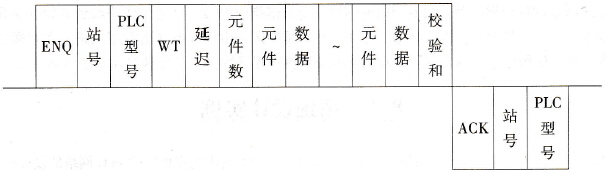 ENQ 站号 PLC型号 WT 延迟 元件数 元件 数据 ~ 元件 数据 校验和
ACK 站号 PLC型号